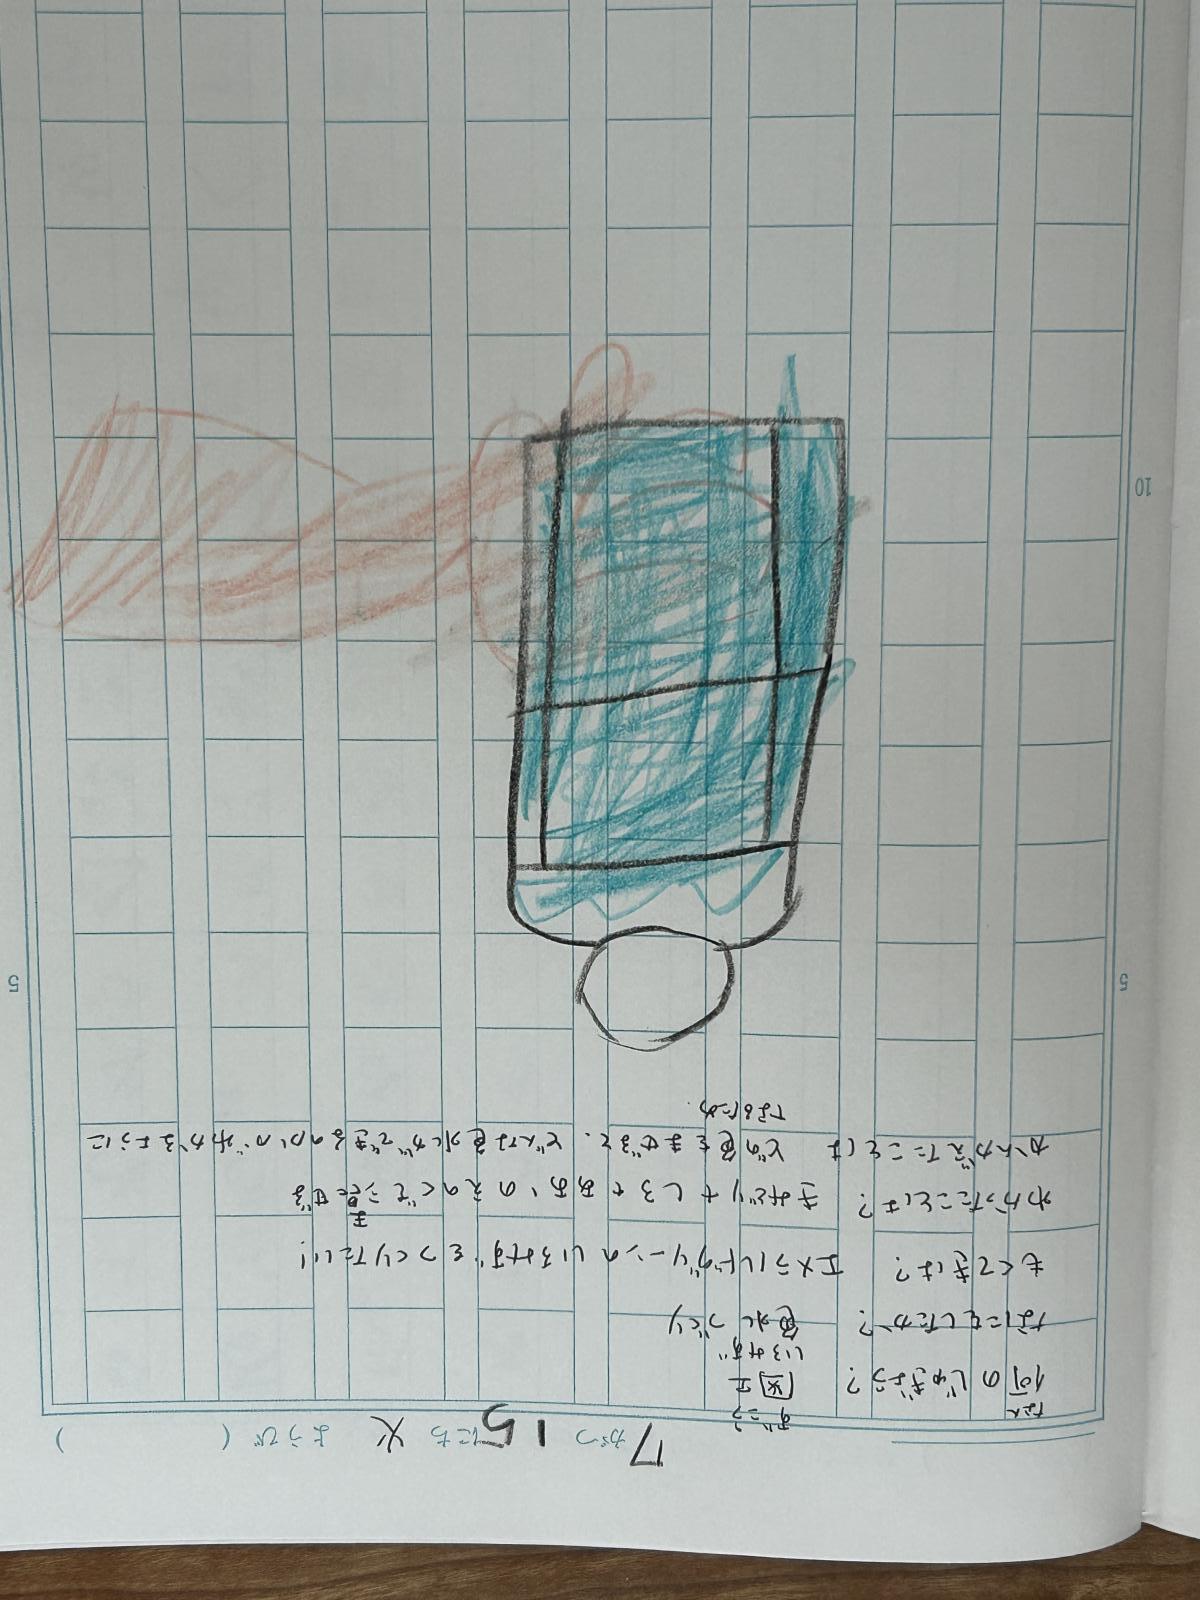 7がつ 15にち 火ようび ( )
なん ずこう
何のじゅぎょう? 図工
いろみず
なにをしたか? 色水づくり
もくてきは? エメラルドグリーンのいろみずをつくりたい!
わかったことは? きみどり+しろ+あお、のえのぐで
ま
かんがえたことは どの色をまぜると、どんな色水ができるのかがわかるように
なるため
5
5
10